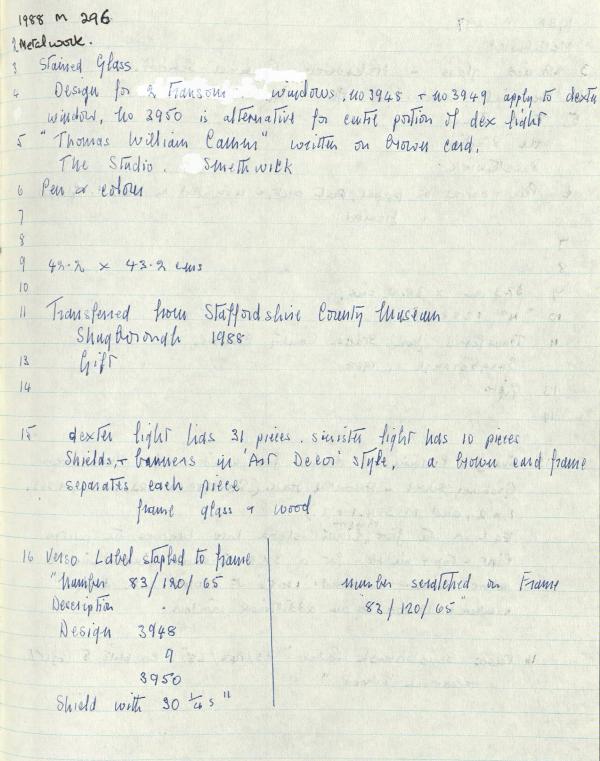 1988 M 296
2 Metalwork.
3 Stained Glass
4 Design for 2 Transom windows. no 3948 + no 3949 apply to dexter
window, no 3950 is alternative for centre portion of dex light
5 "Thomas William Camm" written on brown card.
The Studio. Smethwick
6 Pen & colour
7
8
9 42.2 x 43.2 cms
10
11 Transferred from Staffordshire County Museum
Shugborough 1988
13 Gift
14
15 dexter light has 31 pieces. sinister light has 10 pieces
Shields, + banners in 'Art Decor' style, a brown card frame
separates each piece
frame glass + wood
16 Verso Label stapled to frame
"Number 83/120/65
Description .
Design 3948
9
3950
Shield with 30 1/4s "
number scratched on Frame
"83/120/65"